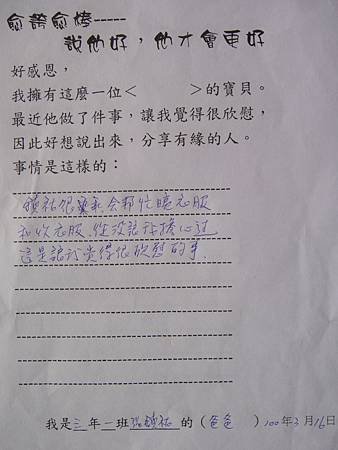 愈誇愈棒-----
說他好，他才會更好
好感恩，
我擁有這麼一位<　　　>的寶貝。
最近他做了件事，讓我覺得很欣慰，
因此好想說出來，分享有緣的人。
事情是這樣的：
鎮祐很乖和会帮忙曬衣服
和收衣服、從沒讓我擔心过
這是讓我覺得很欣慰的事.
我是三年一班張鎮祐的(爸爸　)100年3月16日